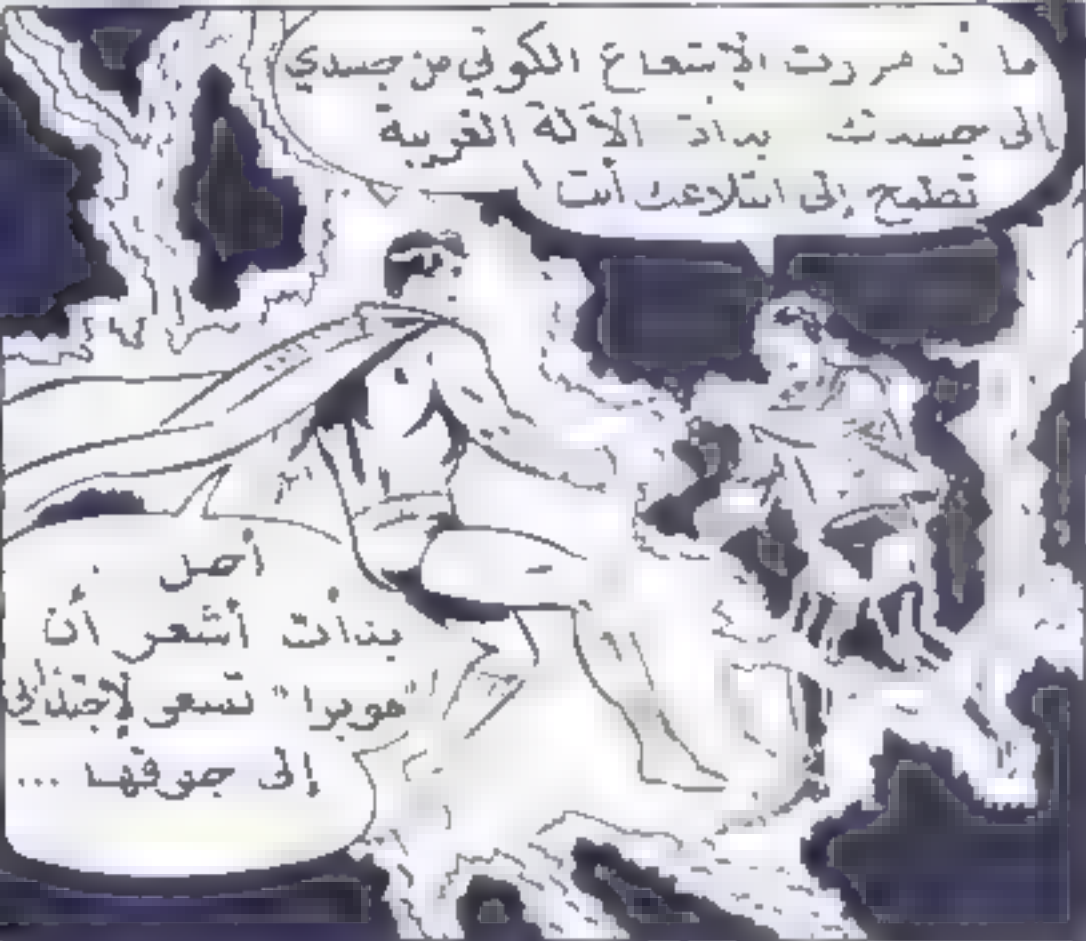 ما أن مررت الإشعاع الكوني من جسدي
إلى جسدك بدأت الآلة الغريبة
تطمح إلى ابتلاعك أنت !
أجل
بدأت أشعر أن
"موبرا" تسعى لإجتذابي
إلى جوفها ...